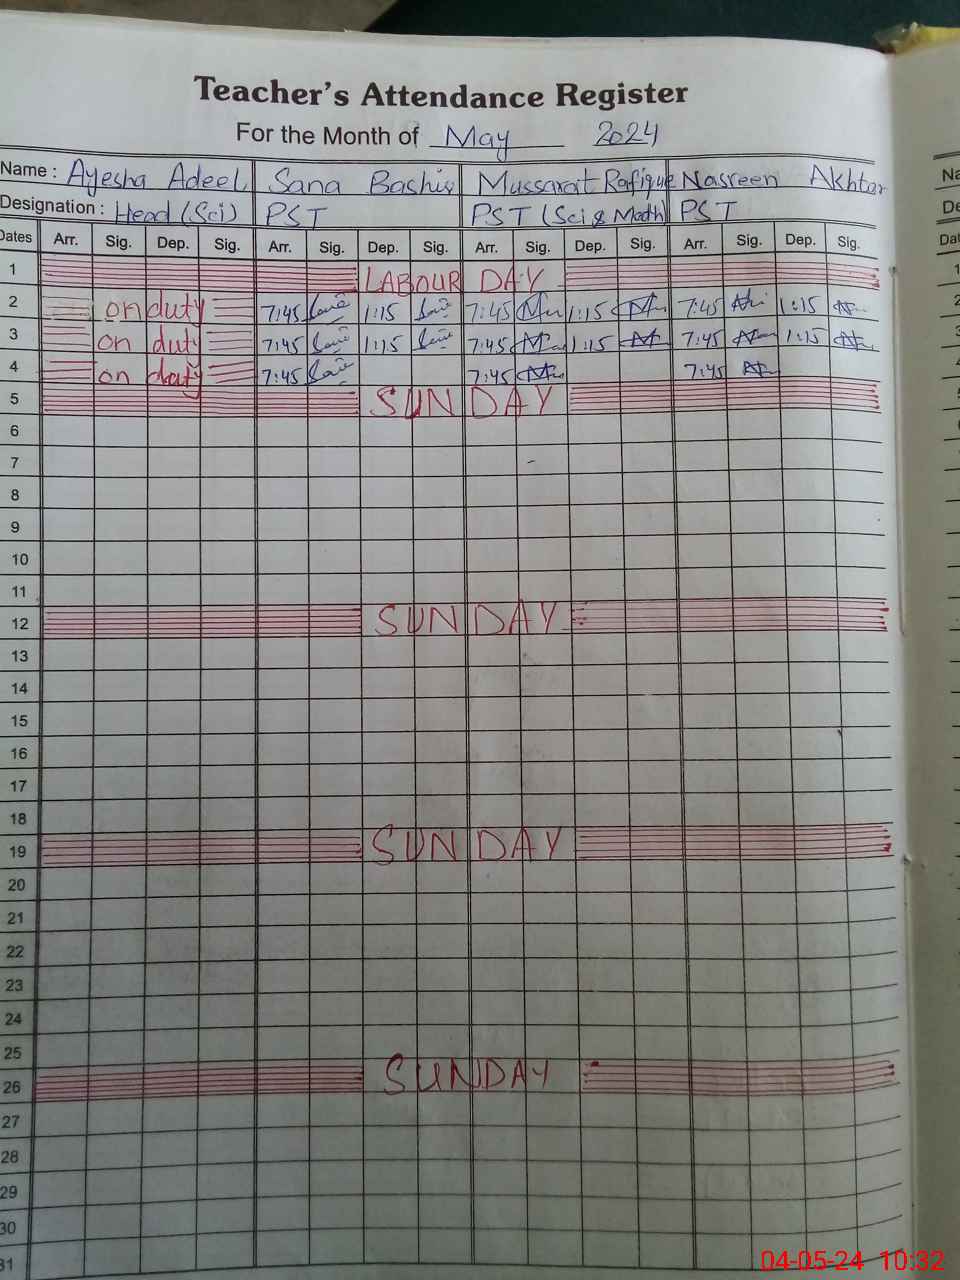 Teacher's Attendance Register
For the Month of May 2024
Name : Ayesha Adeel Sana Bashir Mussarat Rafique Nasreen Akhtar
Designation : Head (Sci) PST PST (Sci & Math) PST
Dates Arr. Sig. Dep. Sig. Arr. Sig. Dep. Sig. Arr. Sig. Dep. Sig. Arr. Sig. Dep. Sig.
1 LABOUR DAY
2 on duty 7:45 1:15 7:45 1:15 7:45 1:15
3 on duty 7:45 1:15 7:45 1:15 7:45 1:15
4 on duty 7:45 7:45 7:45
5 SUNDAY
6
7
8
9
10
11
12 SUNDAY
13
14
15
16
17
18
19 SUNDAY
20
21
22
23
24
25
26 SUNDAY
27
28
29
30
31
Na
De
Dat
04-05-24 10:32